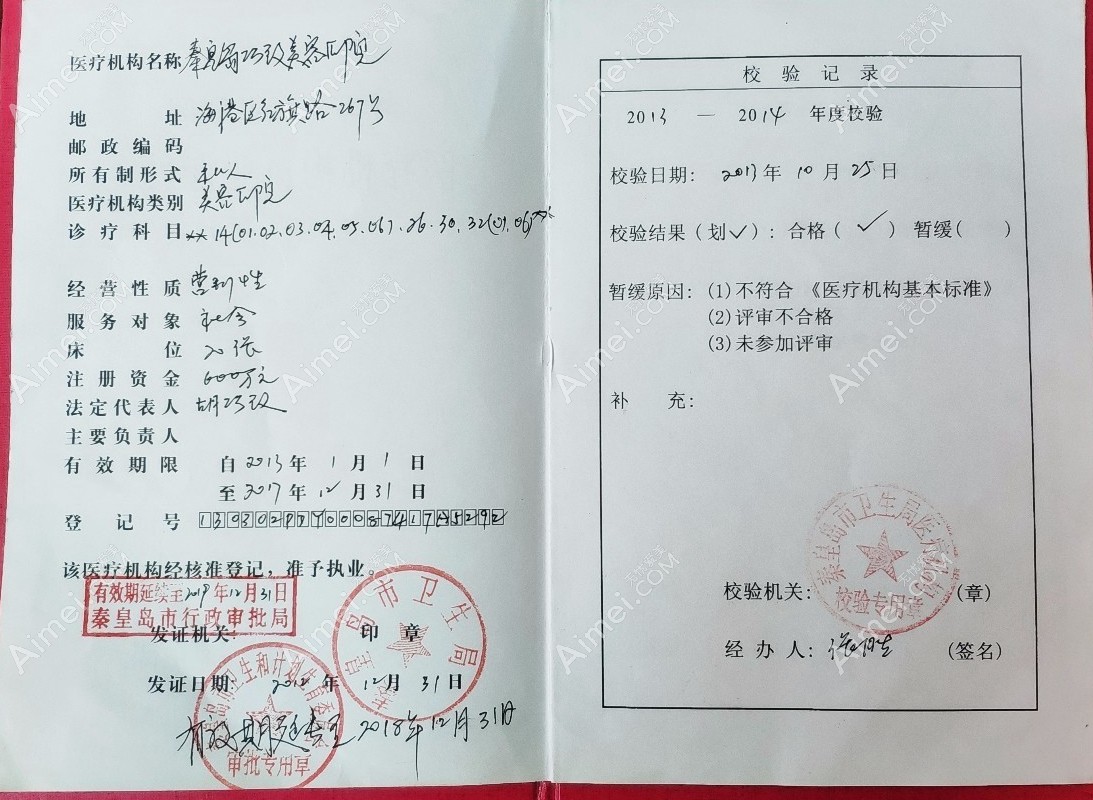 医疗机构名称 秦皇岛巧玫美容医院
地 址 海港区红旗路267号
邮政编码
所有制形式 私人
医疗机构类别 美容医院
诊疗科目 ××14(01.02.03.04.05.06).26.30.32(01.06)××
经营性质 营利性
服务对象 社会
床 位 20张
注册资金 600万元
法定代表人 胡巧玫
主要负责人
有效期限 自2013年1月1日
至2017年12月31日
登记号
该医疗机构经核准登记，准予执业。
有效期延续至2019年12月31日
秦皇岛市行政审批局
发证机关： 印章
秦皇岛市卫生局
发证日期： 2012年12月31日
秦皇岛市卫生和计划生育委员会
审批专用章
有效期延长至2018年12月31日
校验记录
2013 — 2014 年度校验
校验日期： 2013年10月25日
校验结果（划✓）：合格（✓）暂缓（ ）
暂缓原因：(1)不符合《医疗机构基本标准》
(2)评审不合格
(3)未参加评审
补 充：
秦皇岛市卫生局医疗机构
校验专用章
校验机关： (章)
经办人： (签名)
Aimei.COM